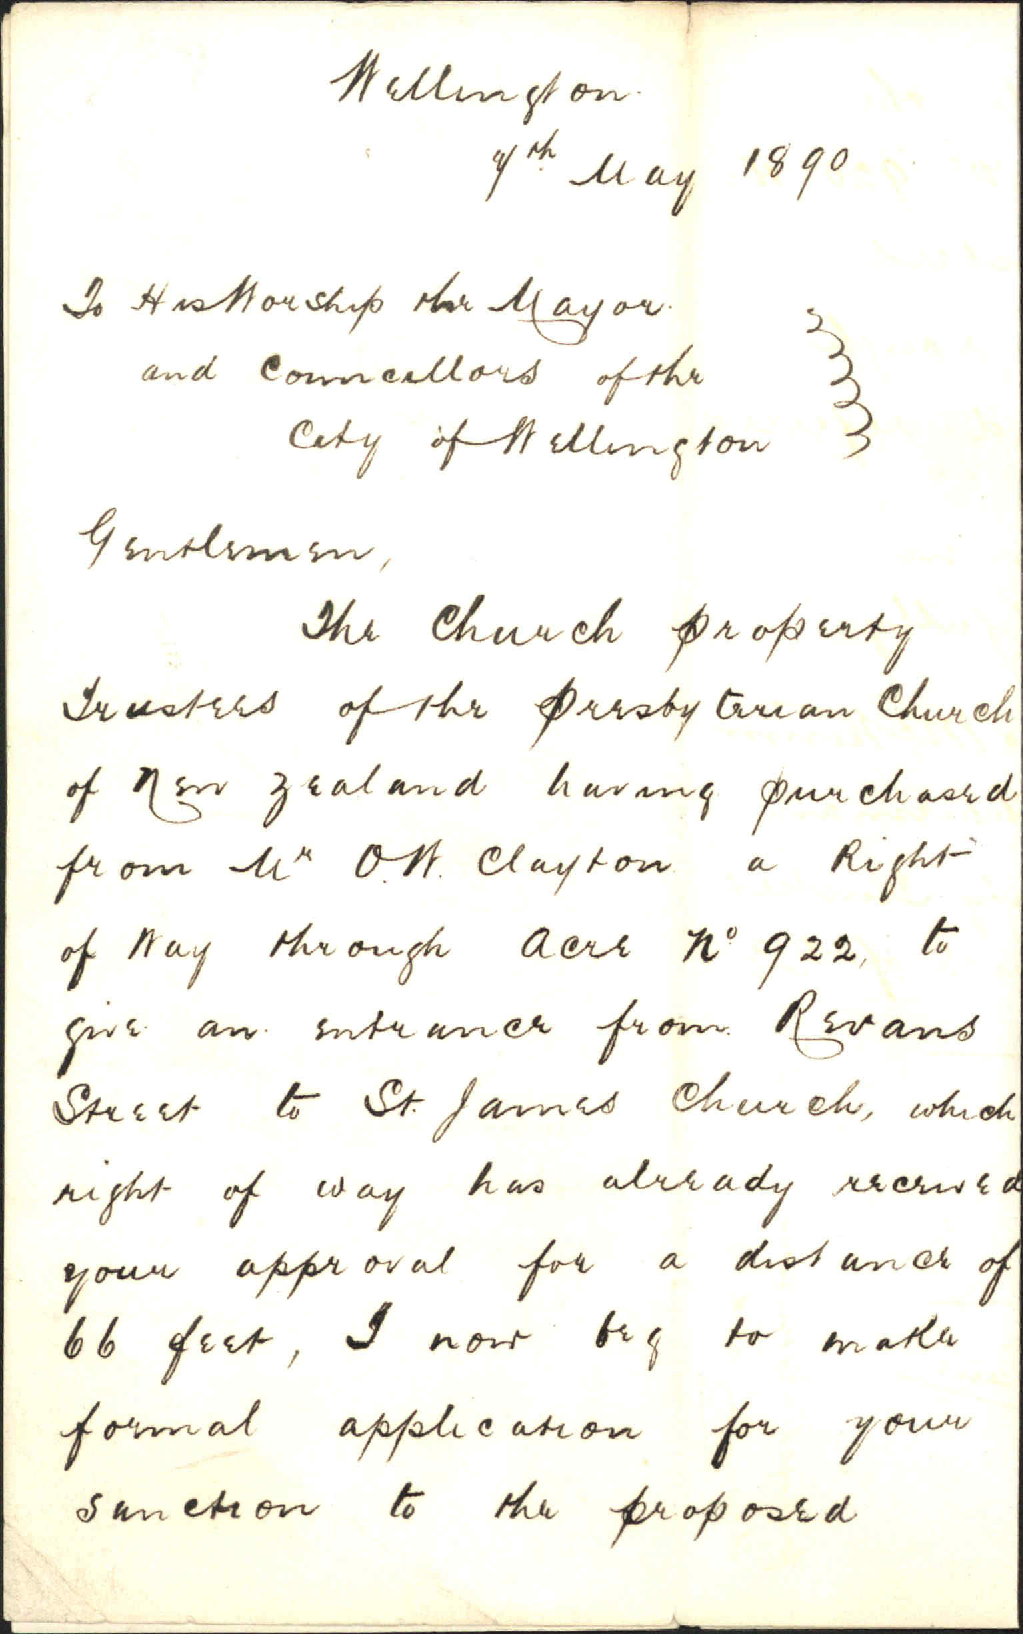 Wellington.
7th May 1890
To His Worship the Mayor.
and Councillors of the
City of Wellington
Gentlemen,
The Church property
Trustees of the Presbyterian Church
of New Zealand having purchased
from Mr O.W. Clayton a Right
of Way through Acre No 922, to
give an entrance from Revans
Street to St. James Church, which
right of way has already received
your approval for a distance of
66 feet, I now beg to make
formal application for your
sanction to the proposed